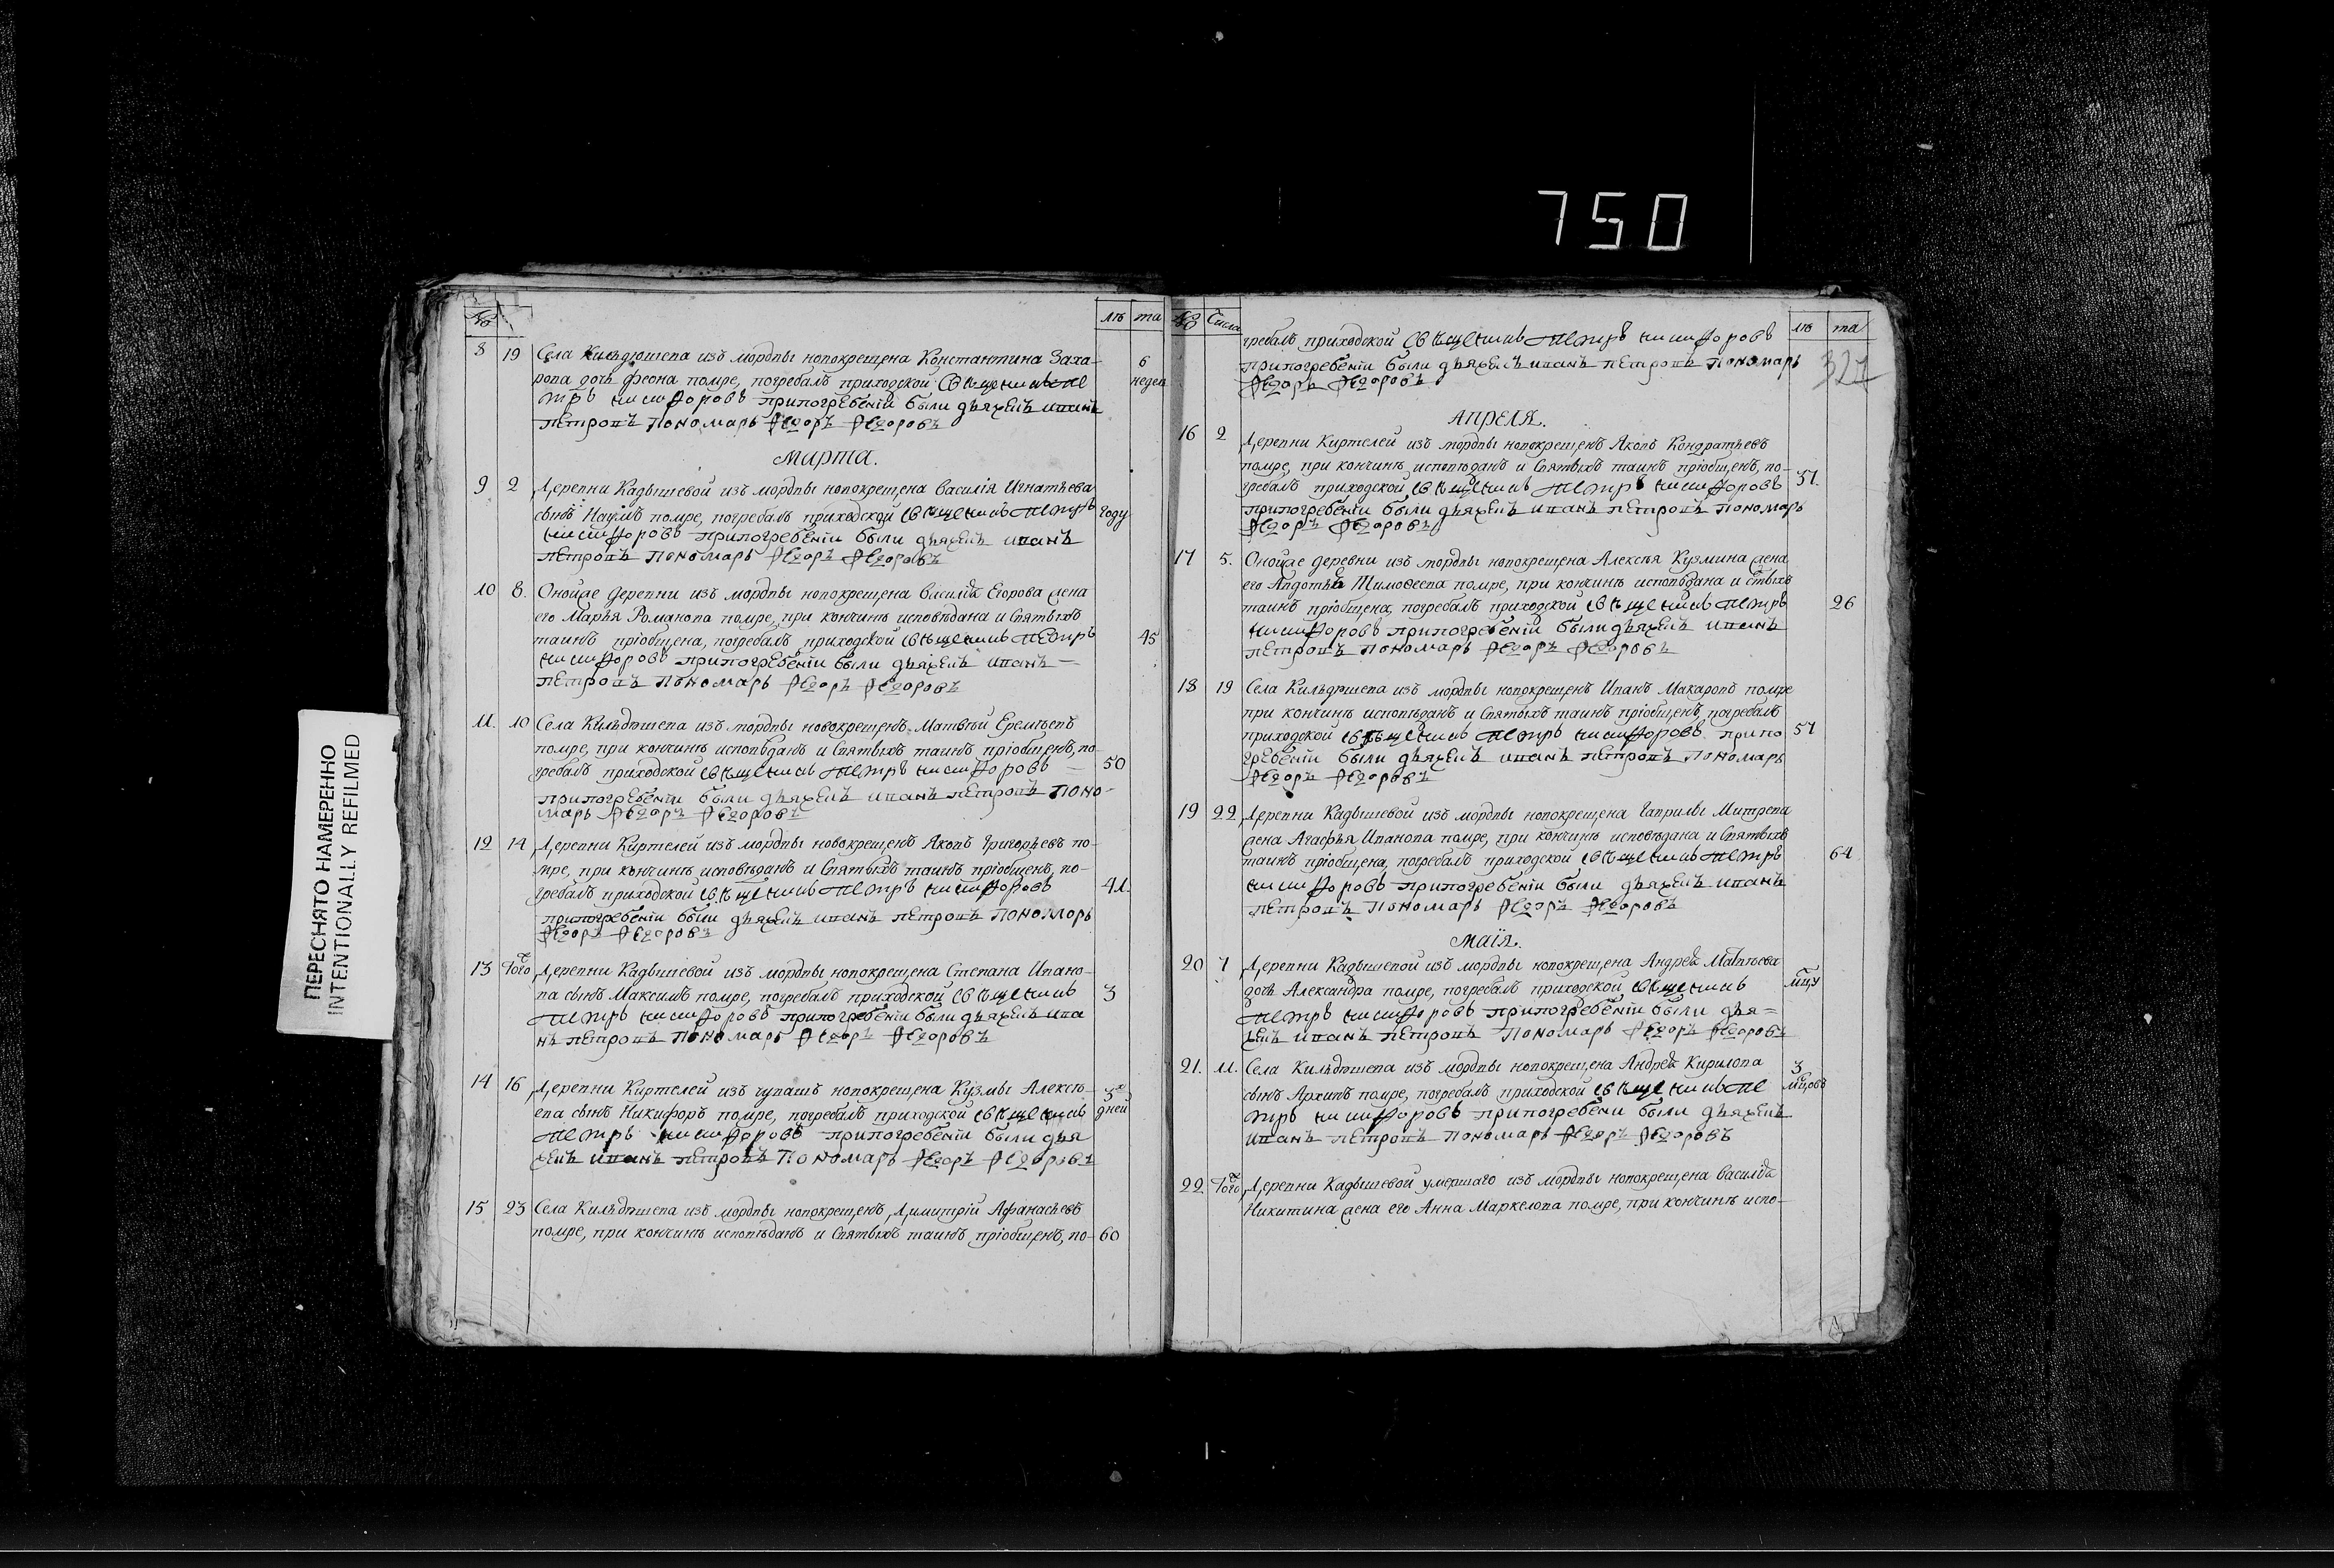 750
ПЕРЕСНЯТО НАМЕРЕННО
INTENTIONALLY REFILMED
№ лѣ та
8 19 Села Кильдюшева изъ мордвы новокрещена Константина Заха-
рова дочь Феона помре, погребалъ приходской священникъ Пе 6 недел
тръ Никифоровъ при погребеніи были дьячекъ Иванъ
Петровъ Пономарь Ѳедоръ Ѳедоровъ
Марта.
9 2 Деревни Кадышевой изъ мордвы новокрещена Василія Игнатьева
сынъ Наумъ помре, погребалъ приходской священникъ Петръ году
Никифоровъ при погребеніи были дьячекъ Иванъ
Петровъ Пономарь Ѳедоръ Ѳедоровъ
10 8. Оной же деревни изъ мордвы новокрещена Василія Егорова жена
его Марья Романова помре, при кончинѣ исповѣдана и Святыхъ
таинъ пріобщена, погребалъ приходской священникъ Петръ 45
Никифоровъ при погребеніи были дьячекъ Иванъ —
Петровъ Пономарь Ѳедоръ Ѳедоровъ
11. 10 Села Кильдюшева изъ мордвы новокрещенъ Матвѣй Еремѣевъ
помре, при кончинѣ исповѣданъ и Святыхъ таинъ пріобщенъ, по-
гребалъ приходской священникъ Петръ Никифоровъ — 50
при погребеніи были дьячекъ Иванъ Петровъ Поно-
марь Ѳедоръ Ѳедоровъ
12 14 Деревни Киртелей изъ мордвы новокрещенъ Яковъ Григорьевъ по-
мре, при кончинѣ исповѣданъ и Святыхъ таинъ пріобщенъ, по-
гребалъ приходской священникъ Петръ Никифоровъ 41.
при погребеніи были дьячекъ Иванъ Петровъ Пономарь
Ѳедоръ Ѳедоровъ
13 Того Деревни Кадышевой изъ мордвы новокрещена Степана Ивано-
ва сынъ Максимъ помре, погребалъ приходской священникъ 3
Петръ Никифоровъ при погребеніи были дьячекъ Ива
нъ Петровъ Пономарь Ѳедоръ Ѳедоровъ
14 16 Деревни Киртелей изъ чувашъ новокрещена Кузмы Алексѣ-
ева сынъ Никифоръ помре, погребалъ приходской священникъ 5 дней
Петръ Никифоровъ при погребеніи были дья
чекъ Иванъ Петровъ Пономарь Ѳедоръ Ѳедоровъ
15 23 Села Кильдюшева изъ мордвы новокрещенъ Димитрій Афанасьевъ
помре, при кончинѣ исповѣданъ и Святыхъ таинъ пріобщенъ, по- 60
№ Числа лѣ та
гребалъ приходской священникъ Петръ Никифоровъ
при погребеніи были дьячекъ Иванъ Петровъ Пономарь 327
Ѳедоръ Ѳедоровъ
Апреля.
16 2 Деревни Киртелей изъ мордвы новокрещенъ Яковъ Кондратьевъ
помре, при кончинѣ исповѣданъ и Святыхъ таинъ пріобщенъ, по-
гребалъ приходской священникъ Петръ Никифоровъ 51.
при погребеніи были дьячекъ Иванъ Петровъ Пономарь
Ѳедоръ Ѳедоровъ
17 5. Оной же деревни изъ мордвы новокрещена Алексѣя Кузмина жена
его Авдотья Тимоѳеева помре, при кончинѣ исповѣдана и стыхъ
таинъ пріобщена, погребалъ приходской священникъ Петръ 26
Никифоровъ при погребеніи были дьячекъ Иванъ
Петровъ Пономарь Ѳедоръ Ѳедоровъ
18 19 Села Кильдюшева изъ мордвы новокрещенъ Иванъ Макаровъ помре
при кончинѣ исповѣданъ и Святыхъ таинъ пріобщенъ, погребалъ
приходской священникъ Петръ Никифоровъ при по 57
гребеніи были дьячекъ Иванъ Петровъ Пономарь
Ѳедоръ Ѳедоровъ
19 22 Деревни Кадышевой изъ мордвы новокрещена Гаврилы Митрева
жена Агафья Иванова помре, при кончинѣ исповѣдана и Святыхъ
таинъ пріобщена, погребалъ приходской священникъ Петръ 64
Никифоровъ при погребеніи были дьячекъ Иванъ
Петровъ Пономарь Ѳедоръ Ѳедоровъ
Маія.
20 7 Деревни Кадышевой изъ мордвы новокрещена Андрея Матвѣева
дочь Александра помре, погребалъ приходской священникъ мцу
Петръ Никифоровъ при погребеніи были дья=
чекъ Иванъ Петровъ Пономарь Ѳедоръ Ѳедоровъ
21. 11. Села Кильдюшева изъ мордвы новокрещена Андрея Кирилова 3
сынъ Архипъ помре, погребалъ приходской священникъ Пе мцовъ
тръ Никифоровъ при погребени были дьячекъ
Иванъ Петровъ Пономарь Ѳедоръ Ѳедоровъ
22 Того Деревни Кадышевой умершаго изъ мордвы новокрещена Василія
Никитина жена его Анна Маркелова помре, при кончинѣ испо-